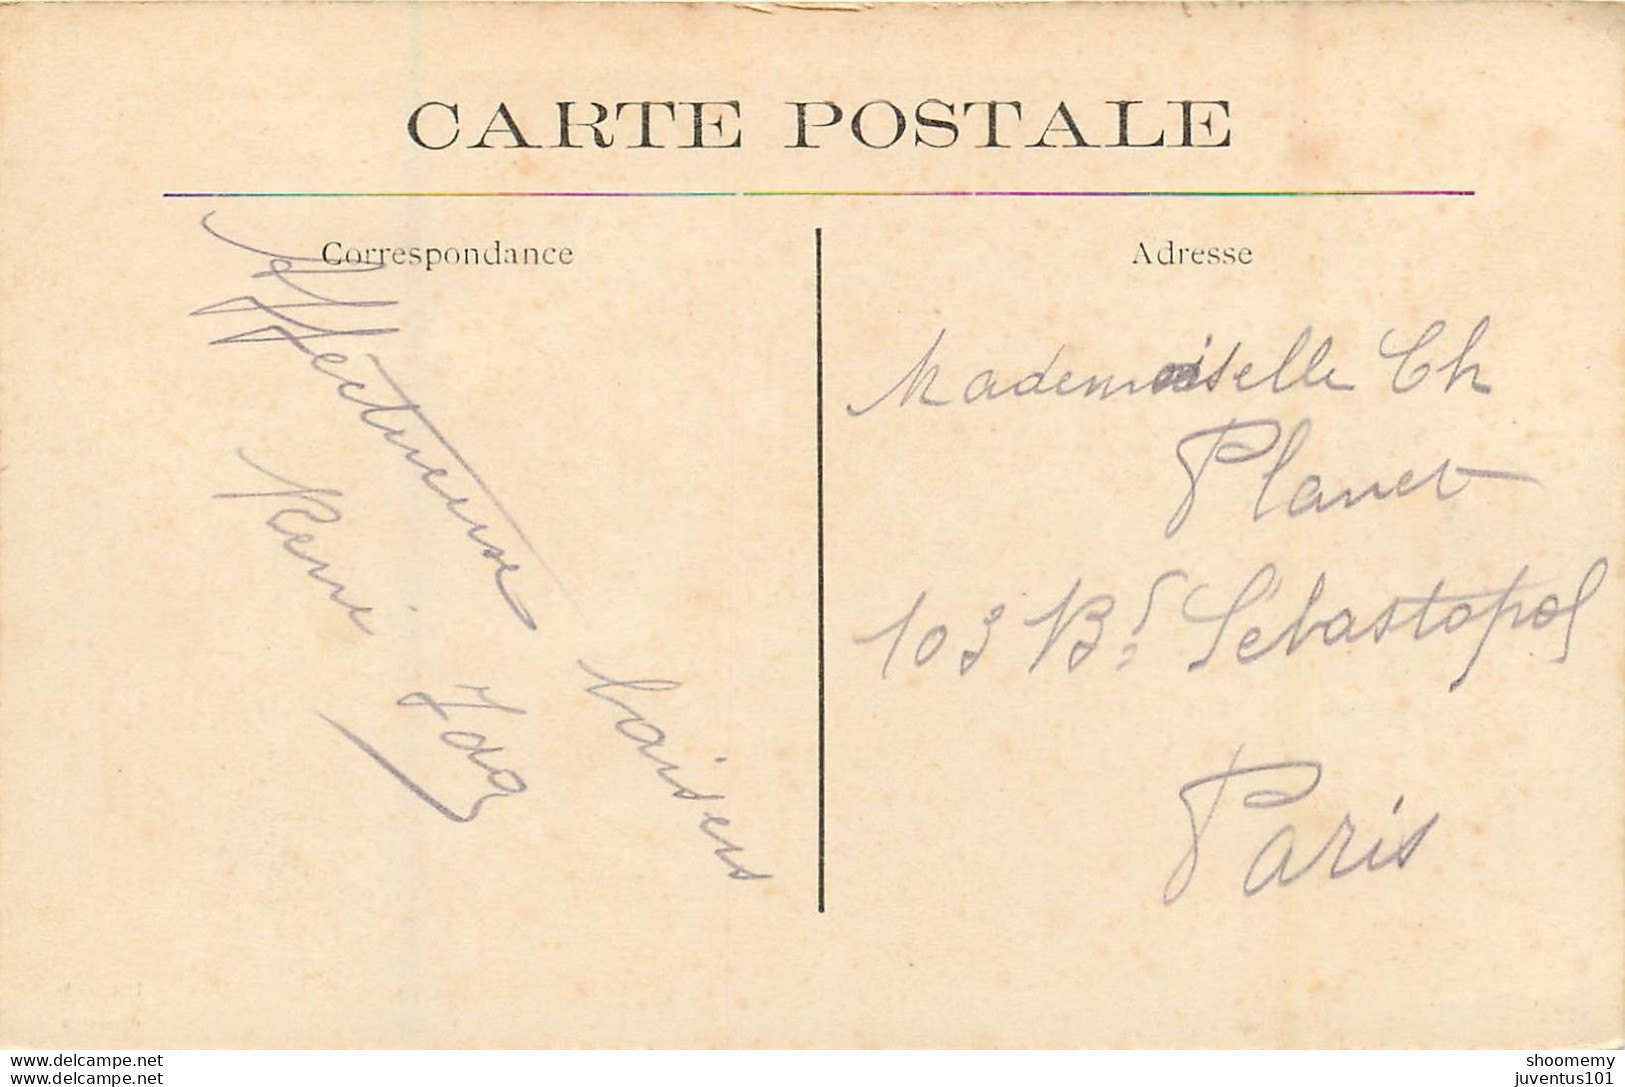 CARTE POSTALE
Correspondance
Affectueuse
baisers
René Ida
Adresse
Mademoiselle Ch
Planet
103 Bd Sébastopol
Paris
www.delcampe.net
www.delcampe.net
shoomemy
juventus101